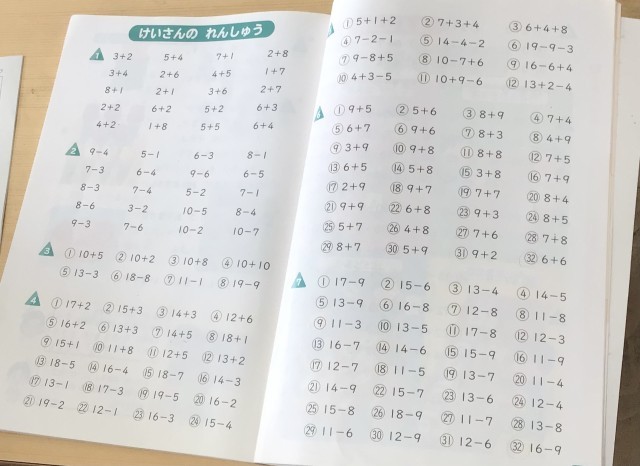 けいさんの れんしゅう
1 3+2 5+4 7+1 2+8
3+4 2+6 4+5 1+7
8+1 2+1 3+6 2+7
2+2 6+2 5+2 6+3
4+2 1+8 5+5 6+4
2 9-4 5-1 6-3 8-1
7-3 6-4 9-6 6-5
8-3 7-4 5-2 7-1
8-6 3-2 10-5 8-4
9-3 7-6 10-2 10-7
3 ①10+5 ②10+2 ③10+8 ④10+10
⑤13-3 ⑥18-8 ⑦11-1 ⑧19-9
4 ①17+2 ②15+3 ③14+3 ④12+6
⑤16+2 ⑥13+3 ⑦14+5 ⑧18+1
⑨15+1 ⑩11+8 ⑪12+5 ⑫13+2
⑬18-5 ⑭16-4 ⑮18-7 ⑯14-3
⑰13-1 ⑱17-3 ⑲19-5 ⑳16-2
㉑19-2 ㉒12-1 ㉓16-3 ㉔15-4
①5+1+2 ②7+3+4 ③6+4+8
④7-2-1 ⑤14-4-2 ⑥19-9-3
⑦9-8+5 ⑧10-7+6 ⑨16-6+4
⑩4+3-5 ⑪10+9-6 ⑫13+2-4
①9+5 ②5+6 ③8+9 ④7+4
⑤6+7 ⑥9+6 ⑦8+3 ⑧4+9
⑨3+9 ⑩9+8 ⑪8+8 ⑫7+5
⑬6+5 ⑭5+8 ⑮3+8 ⑯7+9
⑰2+9 ⑱9+7 ⑲7+7 ⑳8+4
㉑9+9 ㉒6+8 ㉓9+3 ㉔8+5
㉕5+7 ㉖4+8 ㉗7+6 ㉘7+8
㉙8+7 ㉚5+9 ㉛9+2 ㉜6+6
7 ①17-9 ②15-6 ③13-4 ④14-5
⑤13-9 ⑥16-8 ⑦12-8 ⑧11-8
⑨11-3 ⑩13-5 ⑪17-8 ⑫12-3
⑬16-7 ⑭14-6 ⑮15-9 ⑯11-9
⑰12-7 ⑱11-5 ⑲13-7 ⑳11-4
㉑14-9 ㉒15-7 ㉓13-6 ㉔12-4
㉕15-8 ㉖18-9 ㉗11-7 ㉘13-8
㉙11-6 ㉚12-9 ㉛12-6 ㉜16-9